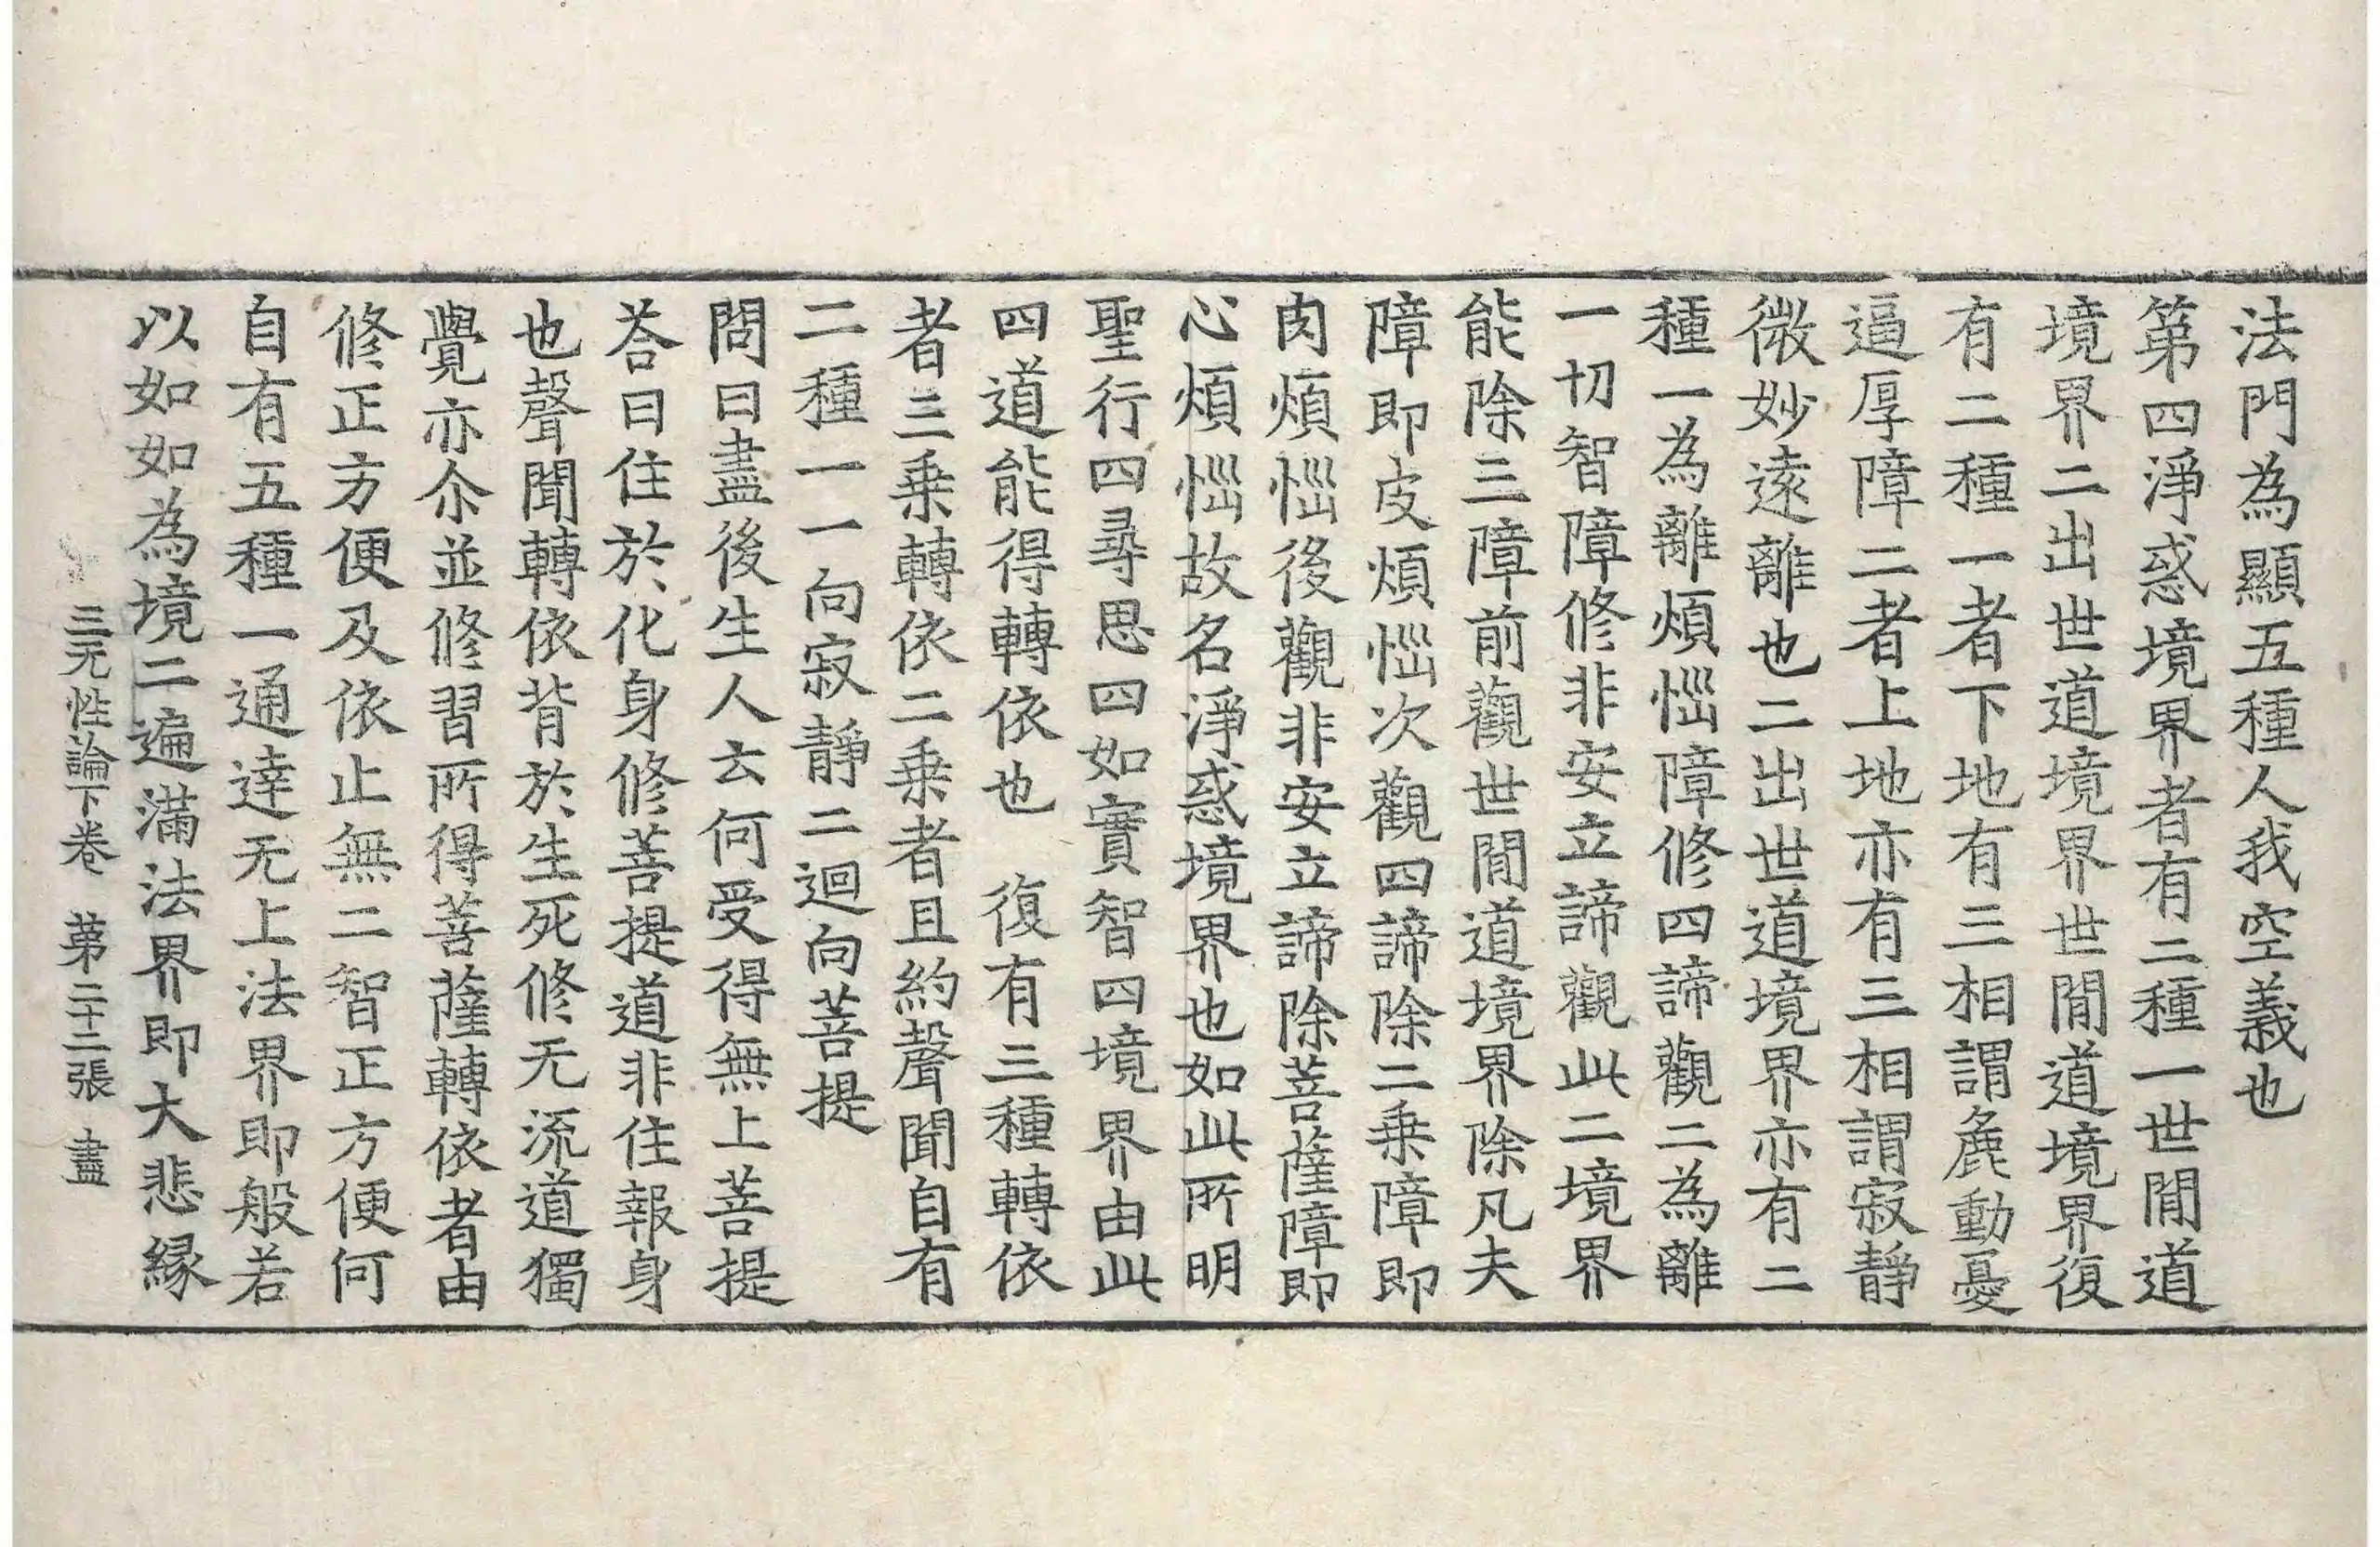 法門為顯五種人我空義也
第四淨惑境界者有二種一世間道
境界二出世道境界世間道境界復
有二種一者下地有三相謂麁動憂
逼厚障二者上地亦有三相謂寂靜
微妙遠離也二出世道境界亦有二
種一為離煩惱障修四諦觀二為離
一切智障修非安立諦觀此二境界
能除三障前觀世間道境界除凡夫
障即皮煩惱次觀四諦除二乗障即
肉煩惱後觀非安立諦除菩薩障即
心煩惱故名淨惑境界也如此所明
聖行四尋思四如實智四境界由此
四道能得轉依也　復有三種轉依
者三乗轉依二乗者且約聲聞自有
二種一一向寂靜二迴向菩提
問曰盡後生人云何受得無上菩提
荅曰住於化身修菩提道非住報身
也聲聞轉依背於生死修无流道獨
覺亦尒並修習所得菩薩轉依者由
修正方便及依止無二智正方便何
自有五種一通達无上法界即般若
以如如為境二遍滿法界即大悲縁
三无性論下卷　第二十二張　盡